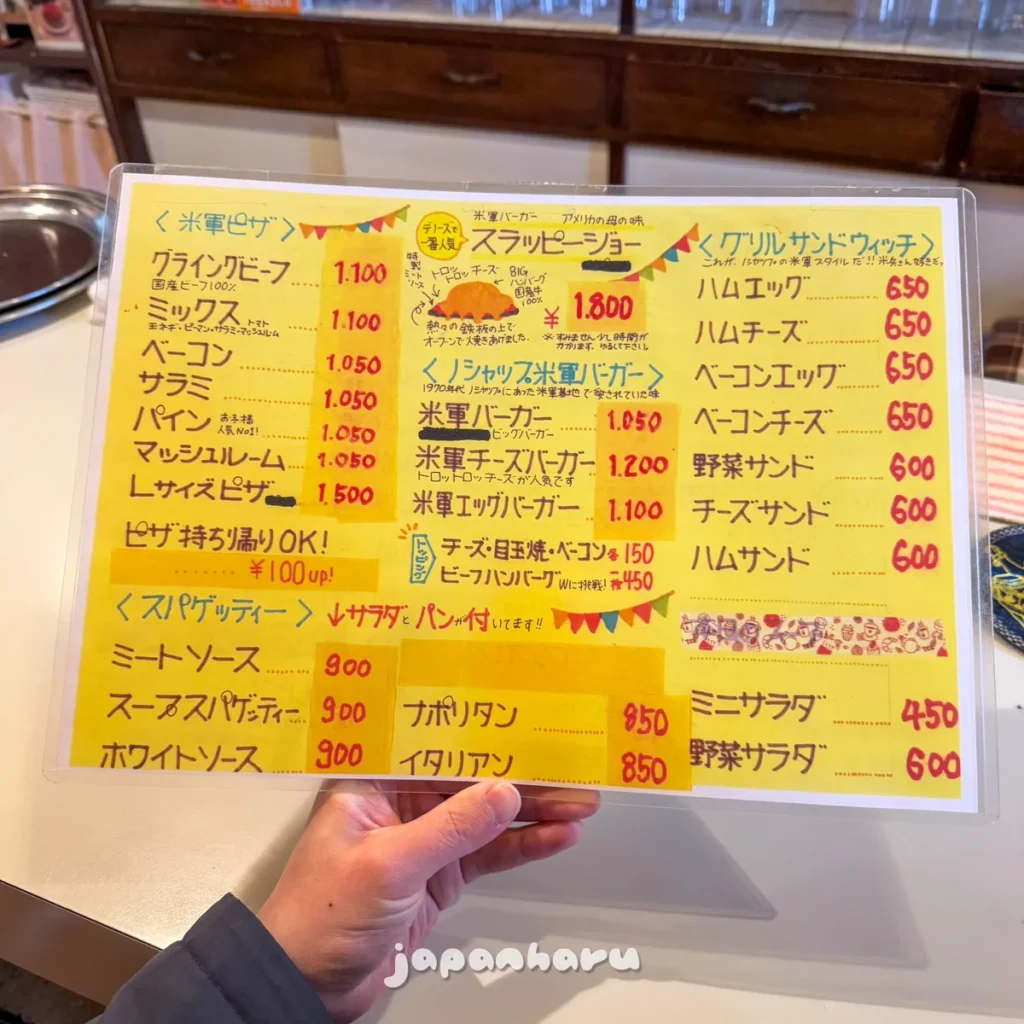 〈米軍ピザ〉
グライングビーフ 1.100
国産ビーフ100%
ミックス 1.100
玉ネギ・ピーマン・サラミ・マッシュルム トマト
ベーコン 1.050
サラミ 1.050
パイン お子様人気No1! 1.050
マッシュルーム 1.050
Lサイズピザ 1.500
ピザ持ち帰りOK!
¥100up!
〈スパゲッティー〉 ↓サラダとパンが付いてます!!
ミートソース 900
スープスパゲッティー 900
ホワイトソース 900
ナポリタン 850
イタリアン 850
米軍バーガー アメリカの母の味
デリースで一番人気
スラッピージョー
特製ミートソース
トロットロッチーズ
BIGハンバーグ国産牛100%
¥1.800
熱々の鉄板の上で
オーブンで焼きあげました.
※すみません少し時間が
かかります。ゆるして下さい。
〈ノシャップ米軍バーガー〉
1970年代ノシャップにあった米軍基地で愛されていた味
米軍バーガー 1.050
ビッグバーガー
米軍チーズバーガー 1.200
トロットロッチーズが人気です
米軍エッグバーガー 1.100
トッピング
チーズ・目玉焼・ベーコン各150
ビーフハンバーグWに挑戦!一枚450
〈グリルサンドウィッチ〉
これが、ノシャップの米軍スタイルだ!!米兵さん好きだ。
ハムエッグ 650
ハムチーズ 650
ベーコンエッグ 650
ベーコンチーズ 650
野菜サンド 600
チーズサンド 600
ハムサンド 600
ミニサラダ 450
野菜サラダ 600
japanharu